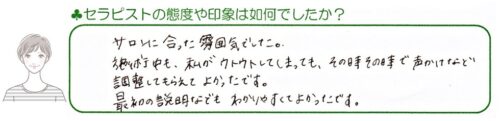 ♣セラピストの態度や印象は如何でしたか？
サロンに合った雰囲気でした。
施術中も、私がウトウトしてしまっても、その時その時で声かけなど
調整してもらえてよかったです。
最初の説明などもわかりやすくてよかったです。